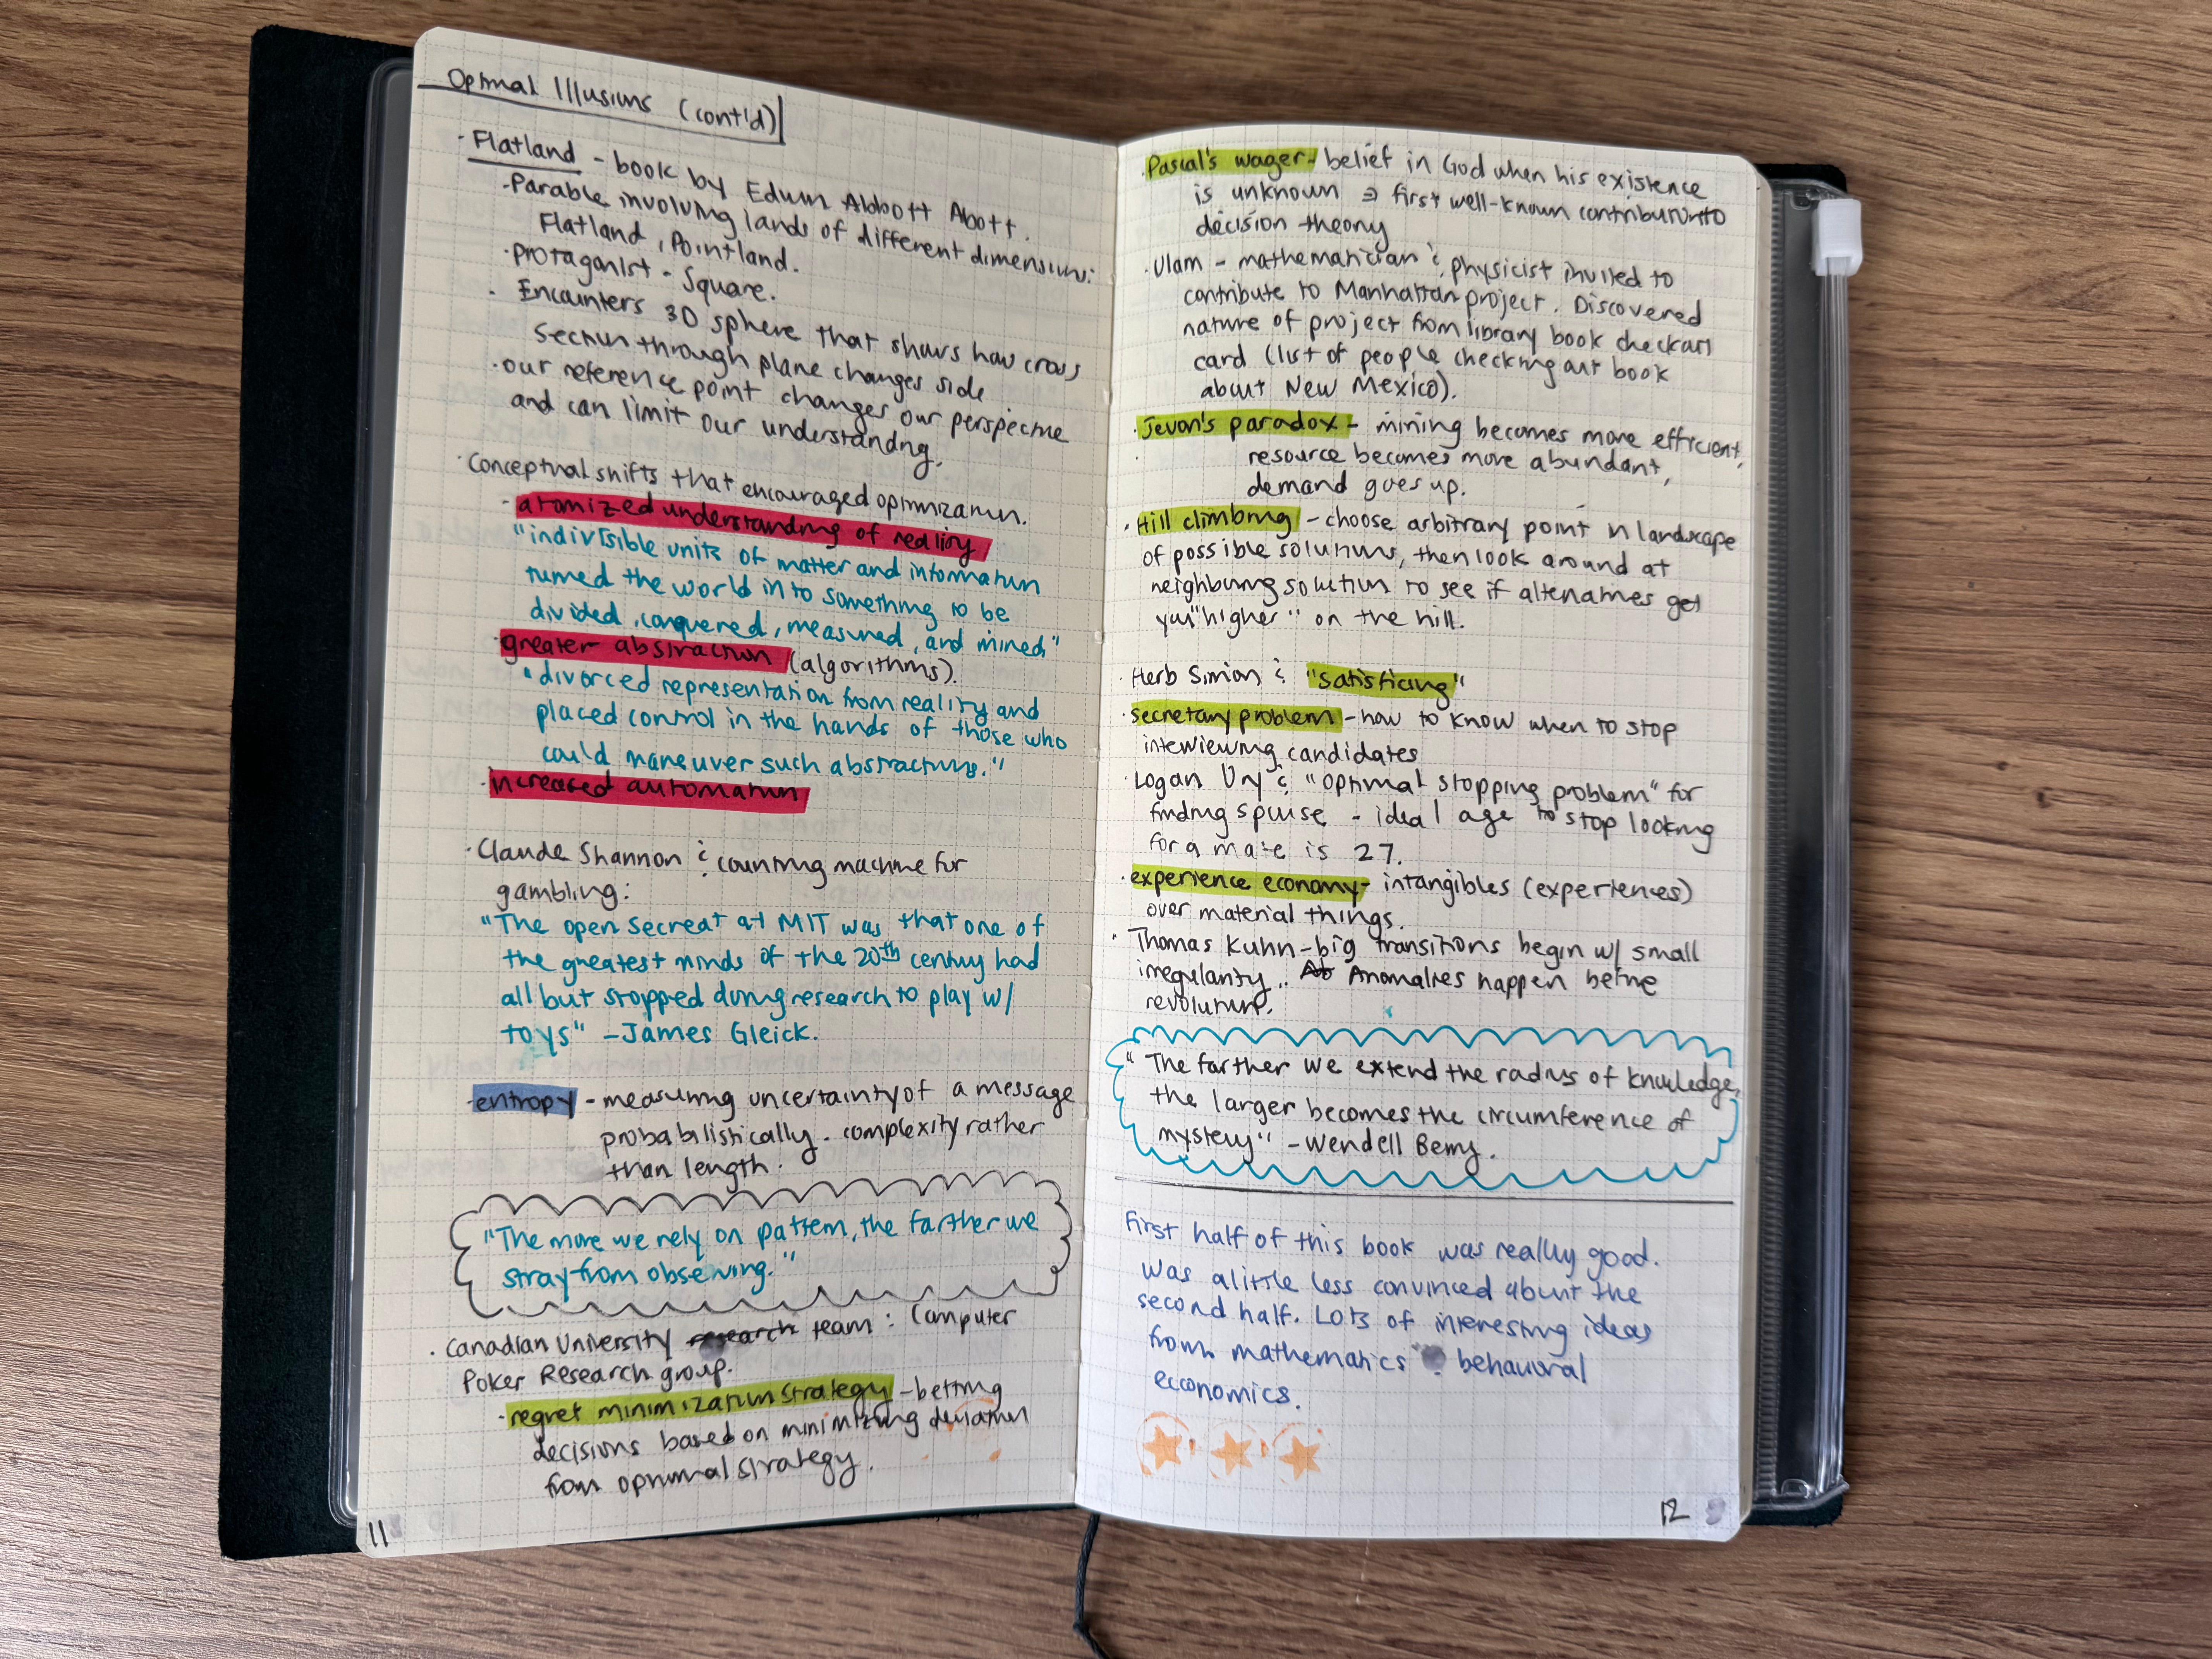 Optimal Illusions (cont'd)
· Flatland - book by Edwin Abbott Abott.
- Parable involving lands of different dimensions:
Flatland, Pointland.
· protagonist - Square.
· Encounters 3D sphere that shows how cross
section through plane changes side
· our reference point changes our perspective
and can limit our understanding.
· Conceptual shifts that encouraged optimization.
- atomized understanding of reality
"indivisible units of matter and information
turned the world in to something to be
divided, conquered, measured, and mined"
· greater abstraction (algorithms).
"divorced representation from reality and
placed control in the hands of those who
could maneuver such abstractions."
· increased automation
· Claude Shannon & counting machine for
gambling:
"The open secreat at MIT was that one of
the greatest minds of the 20th century had
all but stopped doing research to play w/
toys" - James Gleick.
· entropy - measuring uncertainty of a message
probabilistically. complexity rather
than length.
"The more we rely on pattern, the farther we
stray from observing."
· Canadian University research team: Computer
Poker Research group.
· regret minimization strategy - betting
decisions based on minimizing deviation
from optimal strategy.
11
· Pascal's wager - belief in God when his existence
is unknown → first well-known contribution to
decision theory
· Ulam - mathematician & physicist invited to
contribute to Manhattan project. Discovered
nature of project from library book checkout
card (list of people checking out book
about New Mexico).
· Jevon's paradox - mining becomes more efficient,
resource becomes more abundant,
demand goes up.
· Hill climbing - choose arbitrary point in landscape
of possible solutions, then look around at
neighboring solution to see if alternatives get
you "higher" on the hill.
· Herb Simon & "satisficing"
· secretary problem - how to know when to stop
interviewing candidates
· Logan Ury & "optimal stopping problem" for
finding spouse - ideal age to stop looking
for a mate is 27.
· experience economy - intangibles (experiences)
over material things.
· Thomas Kuhn - big transitions begin w/ small
irregularity.. Anomalies happen before
revolution.
"The farther we extend the radius of knowledge,
the larger becomes the circumference of
mystery" - Wendell Berry.
First half of this book was really good.
Was a little less convinced about the
second half. Lots of interesting ideas
from mathematics behavioral
economics.
12